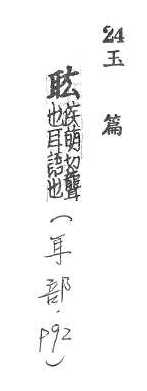 24玉篇
耾
矦萌切聾
也耳語也
(耳部.P92)